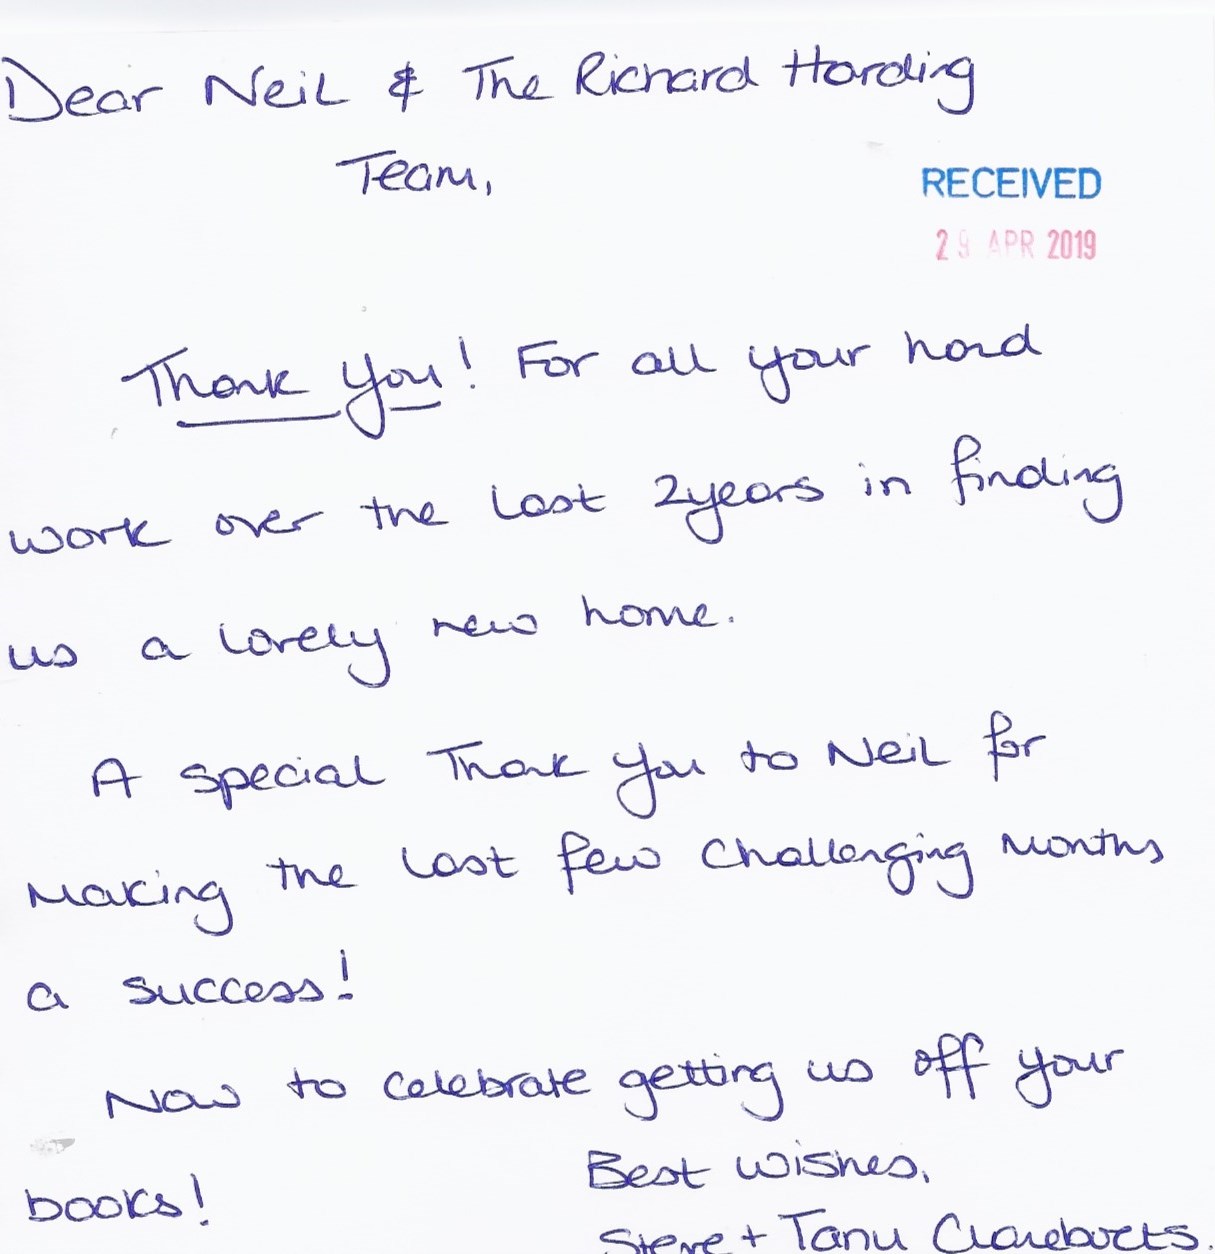 Dear Neil & The Richard Harding
Team,
RECEIVED
29 APR 2019
Thank you! For all your hard
work over the last 2years in finding
us a lovely new home.
A special Thank you to Neil for
Making the last few challenging months
a success!
Now to celebrate getting us off your
books!
Best wishes,
Steve + Tanu